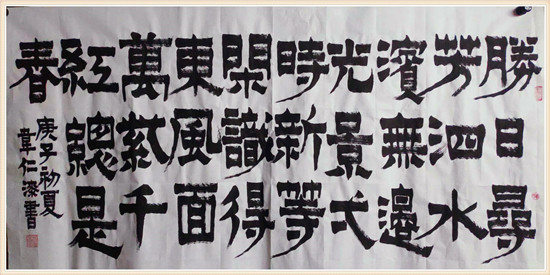 勝日尋
芳泗水
濱無邊
光景弌
時新等
閑識得
東風面
萬紫千
紅總是
春
庚子初夏
韋仁漆書